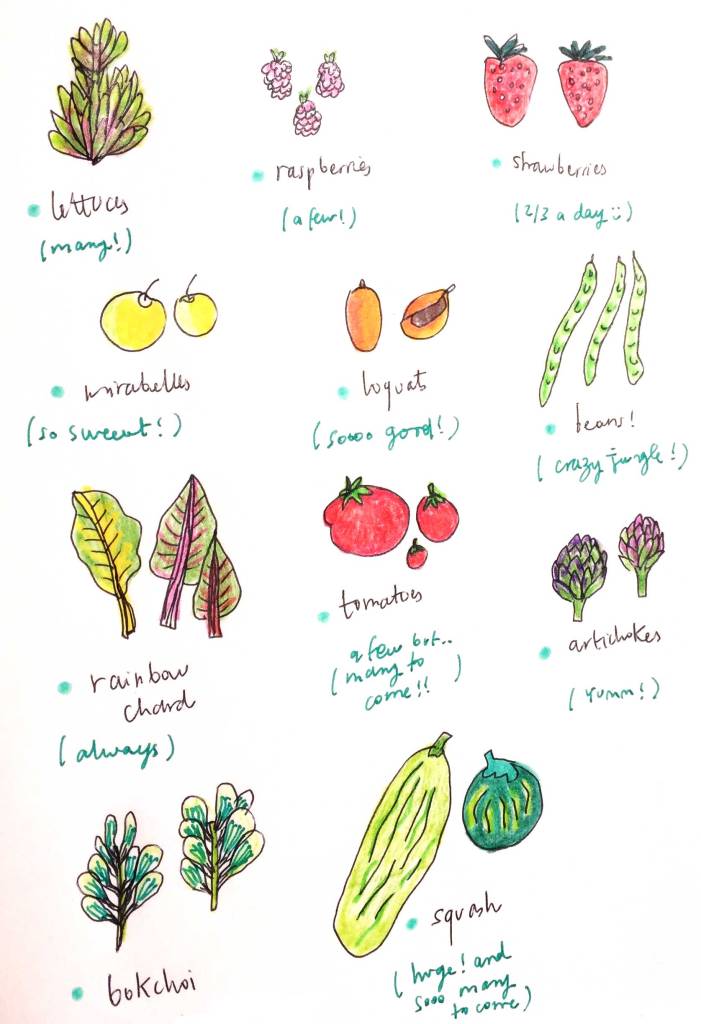 lettuces
(many!)
raspberries
(a few!)
strawberries
(2/3 a day :))
mirabelles
(so sweeet!)
loquats
(soooo good!)
beans!
(crazy jungle!)
rainbow
chard
(always)
tomatoes
(a few but..
many to
come!!)
artichokes
(yumm!)
bokchoi
squash
(huge! and
sooo many
to come)